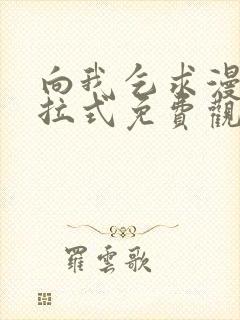 向我乞求漫
拉式免費觀
羅雲歌